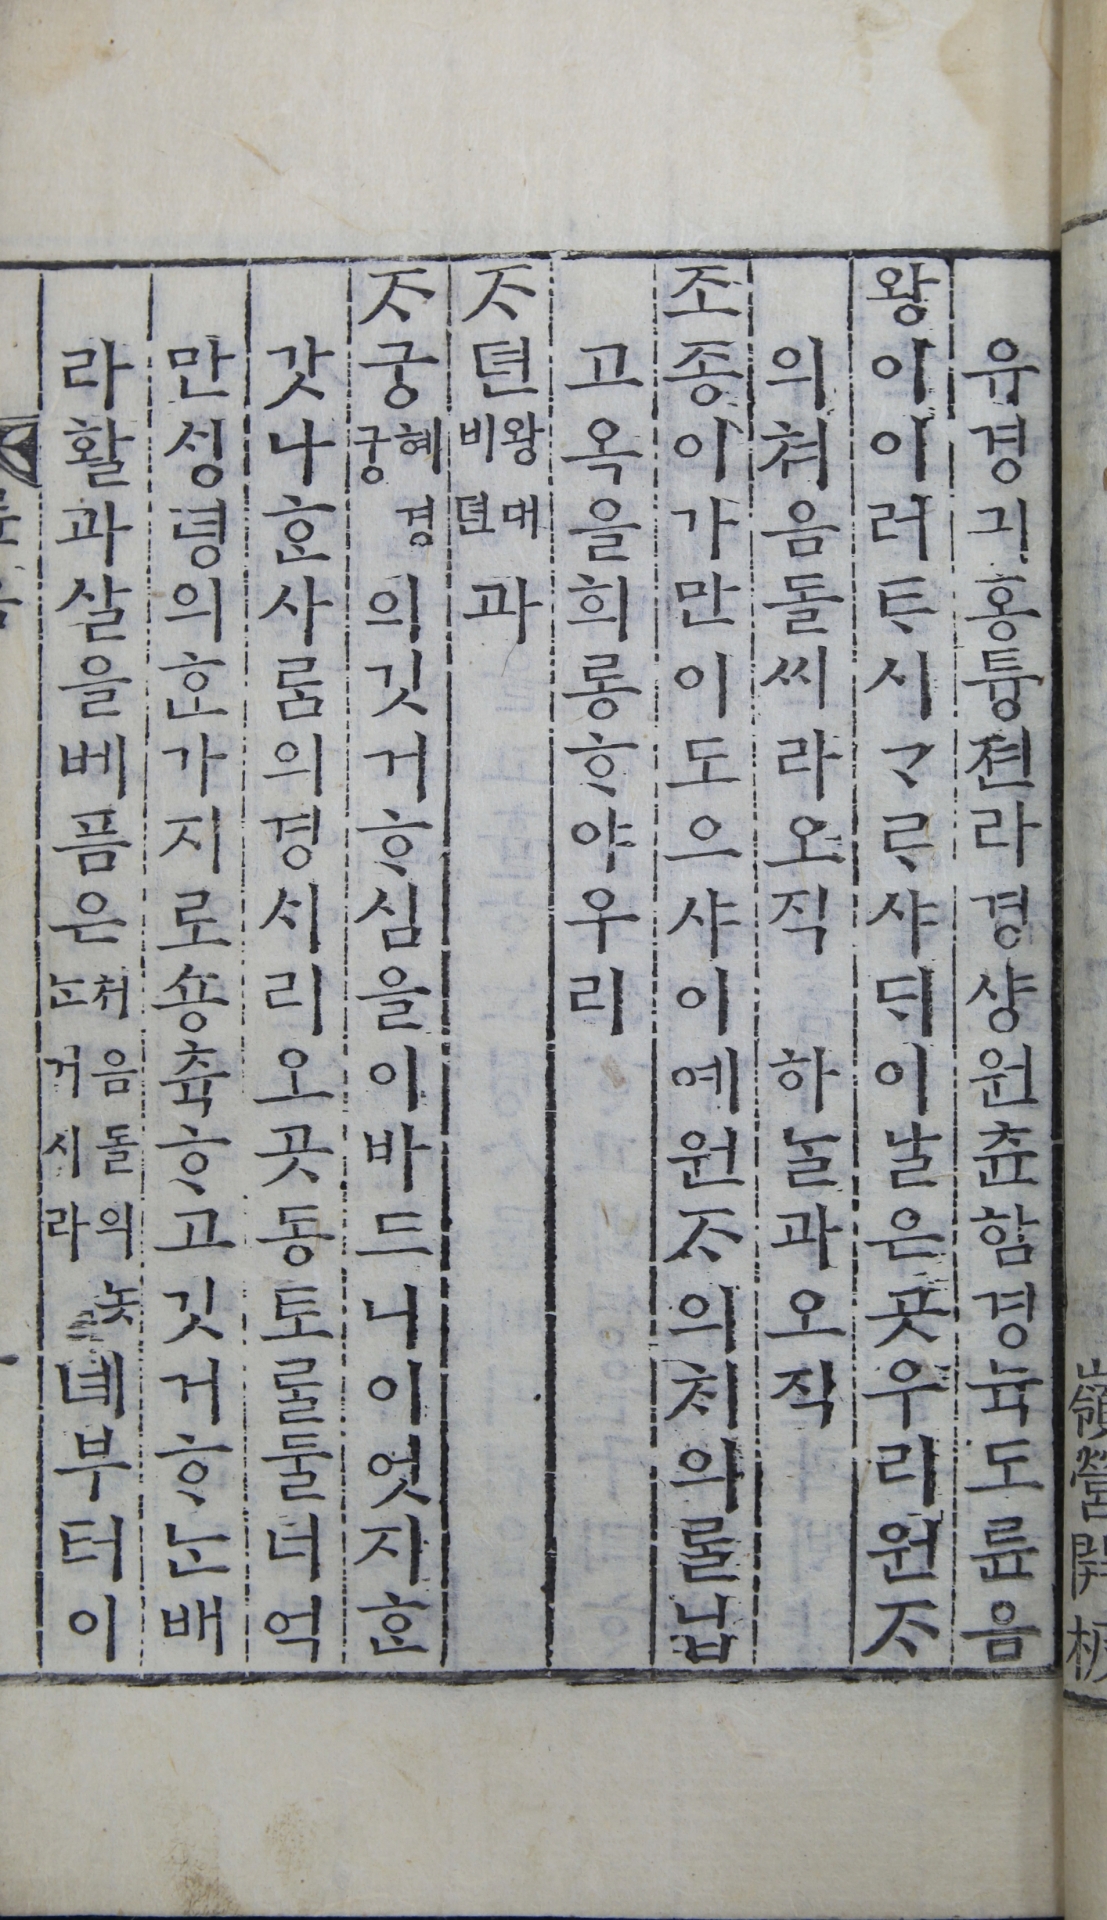 嶺營開板
유경긔홍튱젼라경샹원츈함경뉵도륜음
왕이이러ᄐᆞ시ᄀᆞᄅᆞ샤ᄃᆡ이날은곳우리원ᄌᆞ
의쳐음돌씨라오직 하ᄂᆞᆯ과오작
조종이가만이도으샤이예원ᄌᆞ의ᄎᆡ의ᄅᆞᆯ닙
고옥을희롱ᄒᆞ야우리
ᄌᆞ뎐왕대비뎐과
ᄌᆞ궁혜경궁의깃거ᄒᆞ심을이바드니이엇지ᄒᆞᆫ
갓나ᄒᆞᆫ사ᄅᆞᆷ의경시리오곳동토ᄅᆞᆯ둘너억
만ᄉᆡᆼ녕의ᄒᆞᆫ가지로숑츅ᄒᆞ고깃거ᄒᆞᄂᆞᆫ배
라활과살을베픔은처음돌의놋ᄂᆞᆫ거시라녜부터이